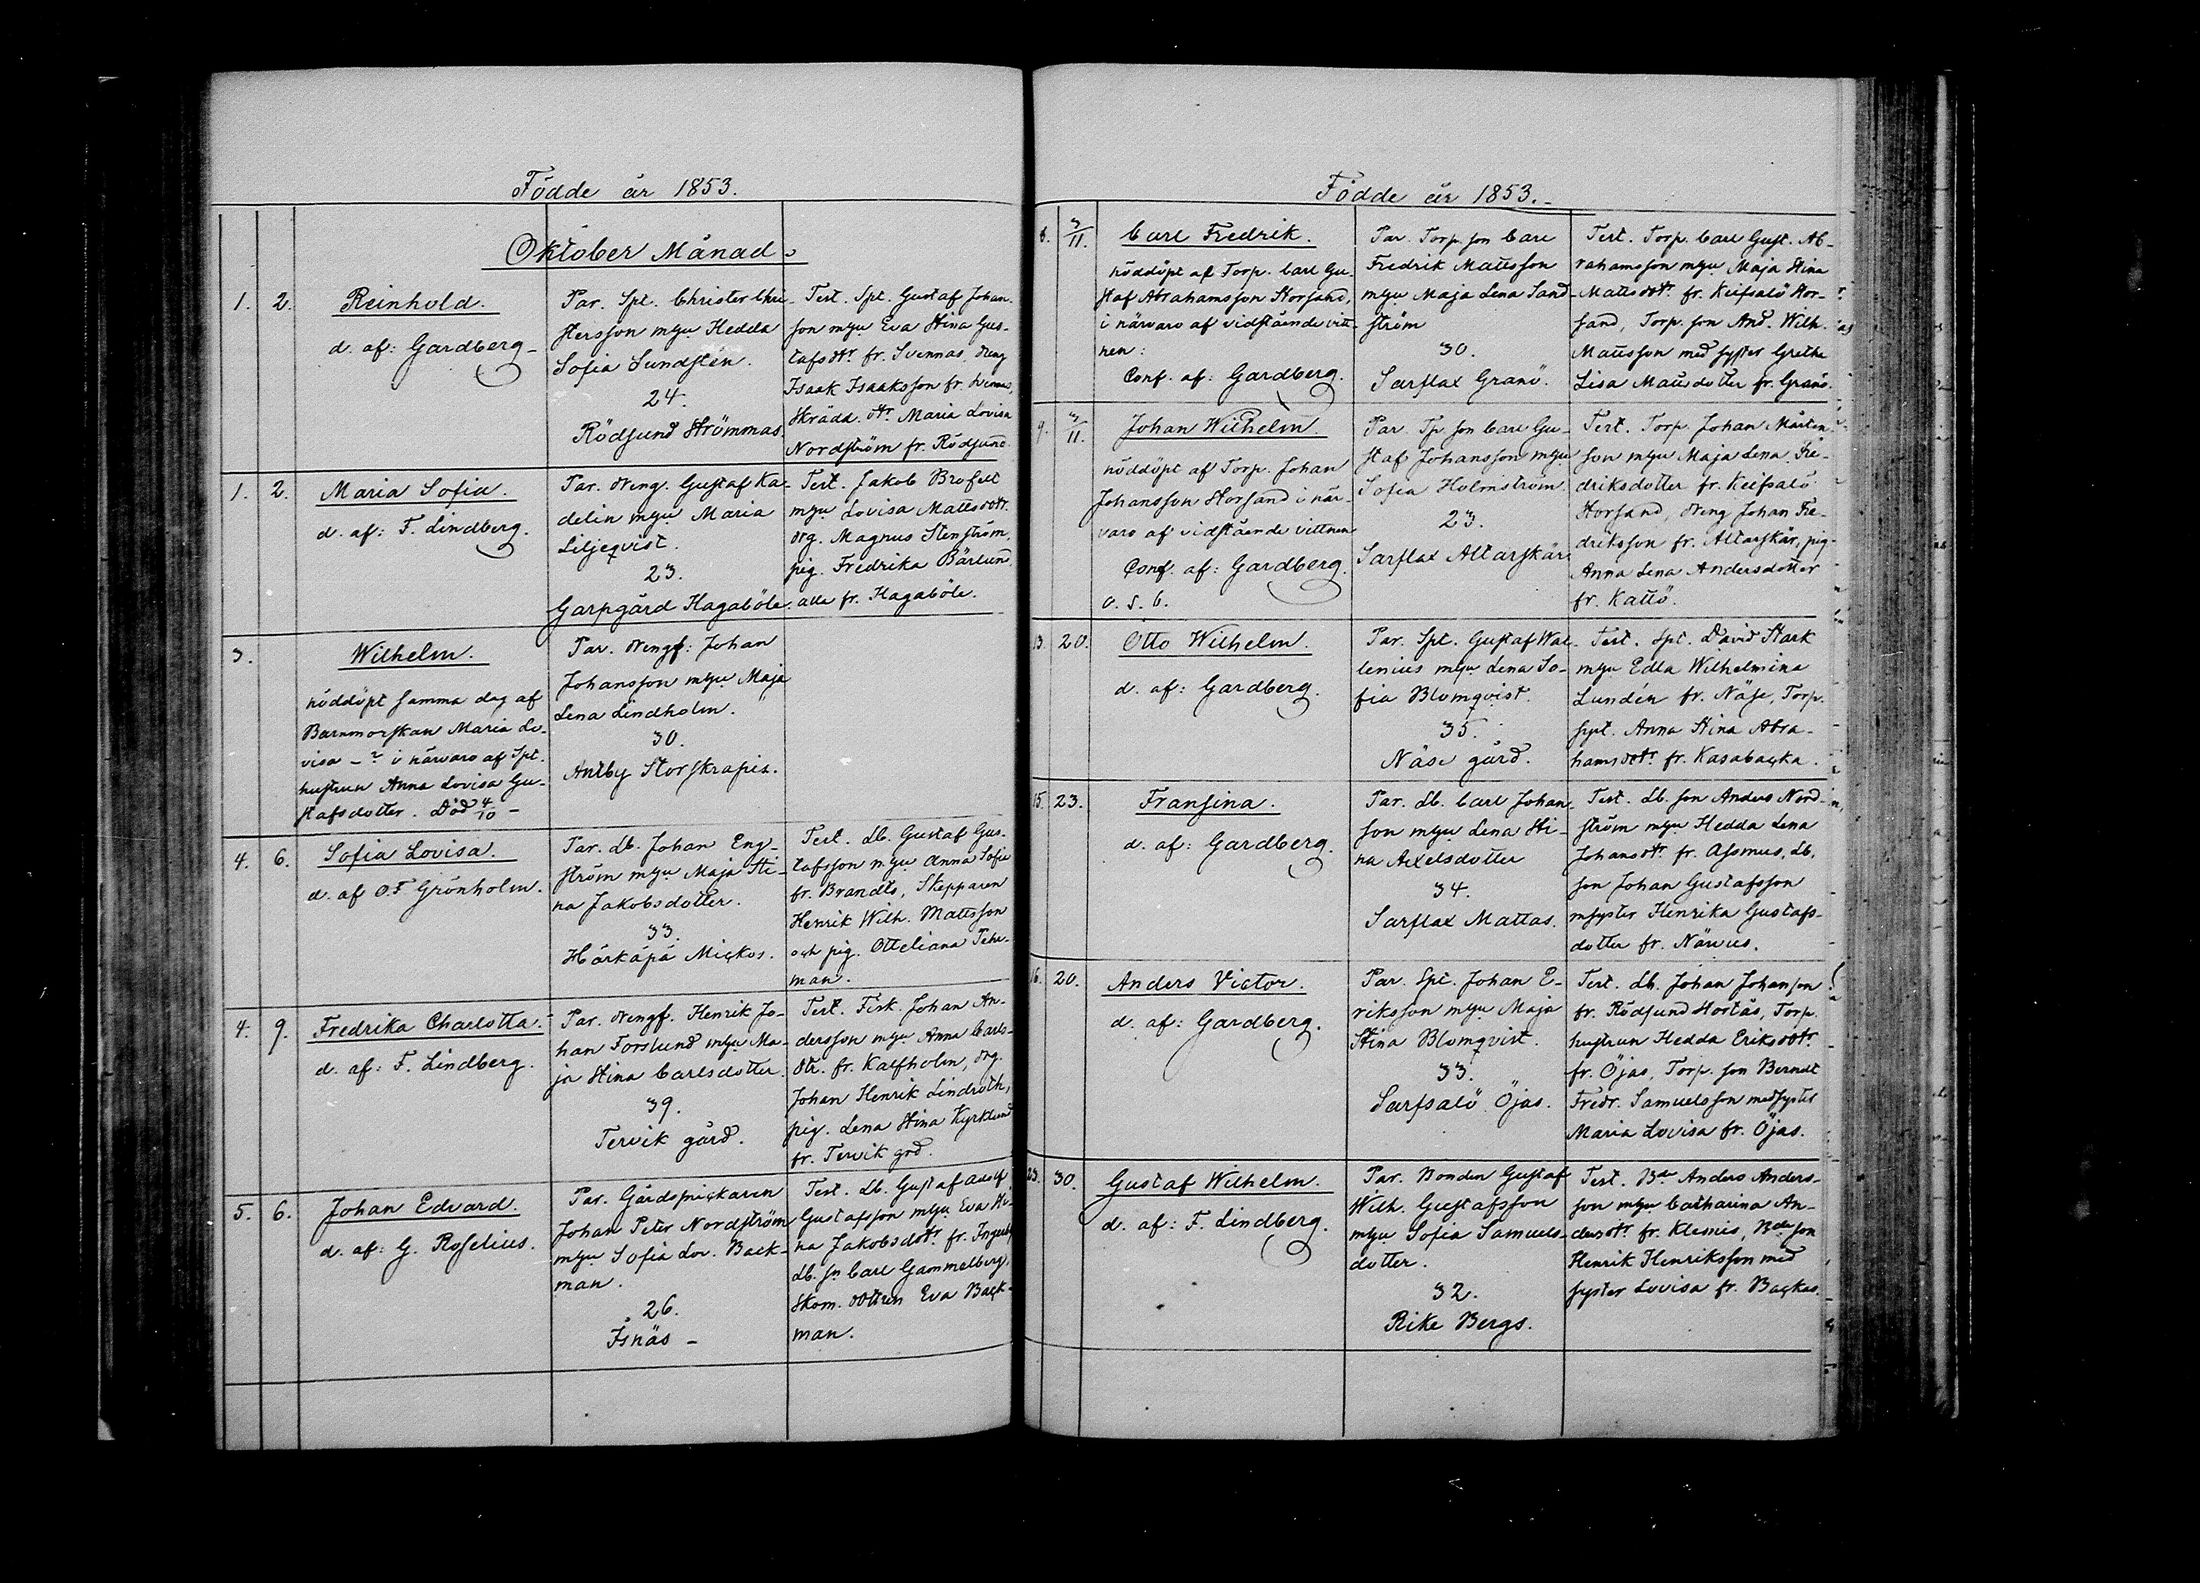 Födde år 1853.
Oktober Månad.
1. 2. Reinhold.
d. af: Gardberg
Par. Spt. Christer Chri-
stersson m hu Hedda
Sofia Sundstén.
24.
Rödsund Strömmas.
Test. Spt. Gustaf Johan-
son m hu Eva Stina Gus-
tafsdtr fr. Svennas, dräng
Isaak Isaaksson fr.
Skrädd. dtr Maria Lovisa
Nordström fr. Rödsund
1. 2. Maria Sofia.
d. af: F. Lindberg.
Par. dräng. Gustaf Ka-
delin m hu Maria
Liljeqvist.
23.
Garpgård Hagaböle.
Test. Jakob Brofelt
m hu Lovisa Mattsdotr.
drg. Magnus Stenström,
pig. Fredrika Bärlund
alla fr. Hagaböle.
3. Wilhelm.
nöddöpt samma dag af
Barnmorskan Maria Lo-
visa - ? i närvaro af Spt.
hustrun Anna Lovisa Gu-
stafsdotter. Död 4/10 -
Par. drengf: Johan
Johansson m hu Maja
Lena Lindholm.
30.
Antby Storskrapis.
4. 6. Sofia Lovisa.
d. af O.F Grönholm.
Par. Lb. Johan Eng-
ström m hu Maja Sti-
na Jakobsdotter.
33.
Härkäpä Mickos.
Test. Lb. Gustaf Gus-
tafsson m hu Anna Sofia
fr. Brandts, Skepparen
Henrik Wilh. Mattsson
och pig. Otteliana
man.
4. 9. Fredrika Charlotta.
d. af: F. Lindberg.
Par. drengf. Henrik Jo-
han Forslund m hu Ma-
ja Stina Carlsdotter.
39.
Tervik gård.
Test. Fisk. Johan An-
dersson m hu Anna Carls-
dtr. fr. Kalfholm, drg.
Johan Henrik Lindroth,
pig. Lena Stina Kyrklund
fr. Tervik grd.
5. 6. Johan Edvard.
d. af: G. Roselius.
Par. Gårdssnickaren
Johan Peter Nordström
m hu Sofia Lov. Back-
man.
26.
Isnäs -
Test. Lb. Gustaf Adolf
Gustafsson m hu Eva Sti-
na Jakobsdotr fr.
Lb. sn Carl Gammelberg,
Skom. dottren Eva Back-
man.
Födde år 1853.-
8. 3/11. Carl Fredrik.
nöddöpt af Torp. Carl Gu-
staf Abrahamsson Storsand,
i närvaro af vidstående vitt-
nen:
Conf. af: Gardberg.
Par. Torp. son Carl
Fredrik Mattsson
m hu Maja Lena Sand-
ström
30.
Sarflax Granö.
Test. Torp. Carl Gust. Ab-
rahamsson m hu Maja Stina
Mattsdotr fr. Keifsalö Stor-
sand, Torp. son And. Wilh.
Mattsson med syster Gretha
Lisa Mattsdotter fr. Granö.
9. 3/11. Johan Wilhelm
nöddöpt af Torp. Johan
Johansson Storsand i när-
varo af vidstående vittnen
Conf. af: Gardberg.
o. s. b.
Par. Tp son Carl Gu-
staf Johansson m hu
Sofia Holmström.
23.
Sarflax Altarskär.
Test. Torp. Johan Mårten-
son m hu Maja Lena Fre-
driksdotter fr. Keifsalö
Storsand, dreng Johan Fre-
driksson fr. Altarskär, pig.
Anna Lena Andersdotter
fr. Kattö.
13. 20. Otto Wilhelm.
d. af: Gardberg.
Par. Spt. Gustaf Wal-
lenius m hu Lena So-
fia Blomqvist.
35.
Näse gård.
Test. Spt. David Stark
m hu Edla Wilhelmina
Lundén fr. Näse, Torp.
hust. Anna Stina Abra-
hamsdotr fr. Kasabacka.
15. 23. Fransina.
d. af: Gardberg.
Par. Lb. Carl Johan-
son m hu Lena Sti-
na Axelsdotter
34.
Sarflax Mattas.
Test. Lb. son Anders Nord-
ström m hu Hedda Lena
Johansdtr. fr. Assmus, Lb.
son Johan Gustafsson
m syster Henrika Gustafs-
dotter fr. Närvus.
16. 20. Anders Victor.
d. af: Gardberg.
Par. Spt. Johan E-
riksson m hu Maja
Stina Blomqvist.
33.
Sarfsalö Öjas.
Test. Lb. Johan Johansson
fr. Rödsund Hortas, Torp.
hustrun Hedda Eriksdotr
fr. Öjas, Torp. son Berndt
Fredr. Samuelsson med syster
Maria Lovisa fr. Öjas.
23. 30. Gustaf Wilhelm.
d. af: F. Lindberg.
Par. Bonden Gustaf
Wilh. Gustafsson
m hu Sofia Samuels-
dotter.
32.
Rike Bergs.
Test. Bdn Anders Anders-
son m hu Catharina An-
dersdtr fr. Klemis, Bde son
Henrik Henriksson med
syster Lovisa fr. Backas.